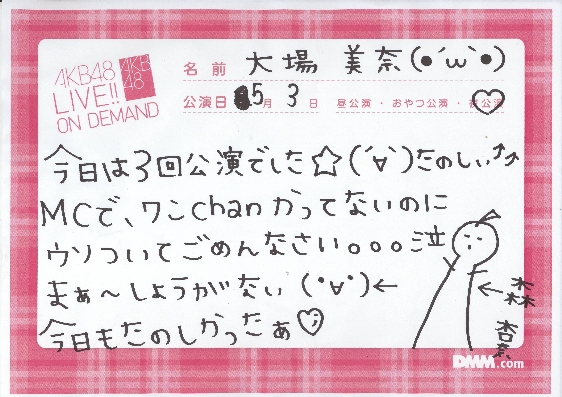 AKB48
LIVE!!
ON DEMAND
AKB
48
名前 大場 美奈(●´ω`●)
公演日 5月 3日 昼公演・おやつ公演・夜公演
今日は3回公演でした☆(´∀`)たのしぃ↑↑
MCで、ワンchanかってないのに
ウソついてごめんなさい。。。泣
まぁ～しょうがない(・∀・)←
今日もたのしかったぁ♡
←森
杏奈
DMM.com